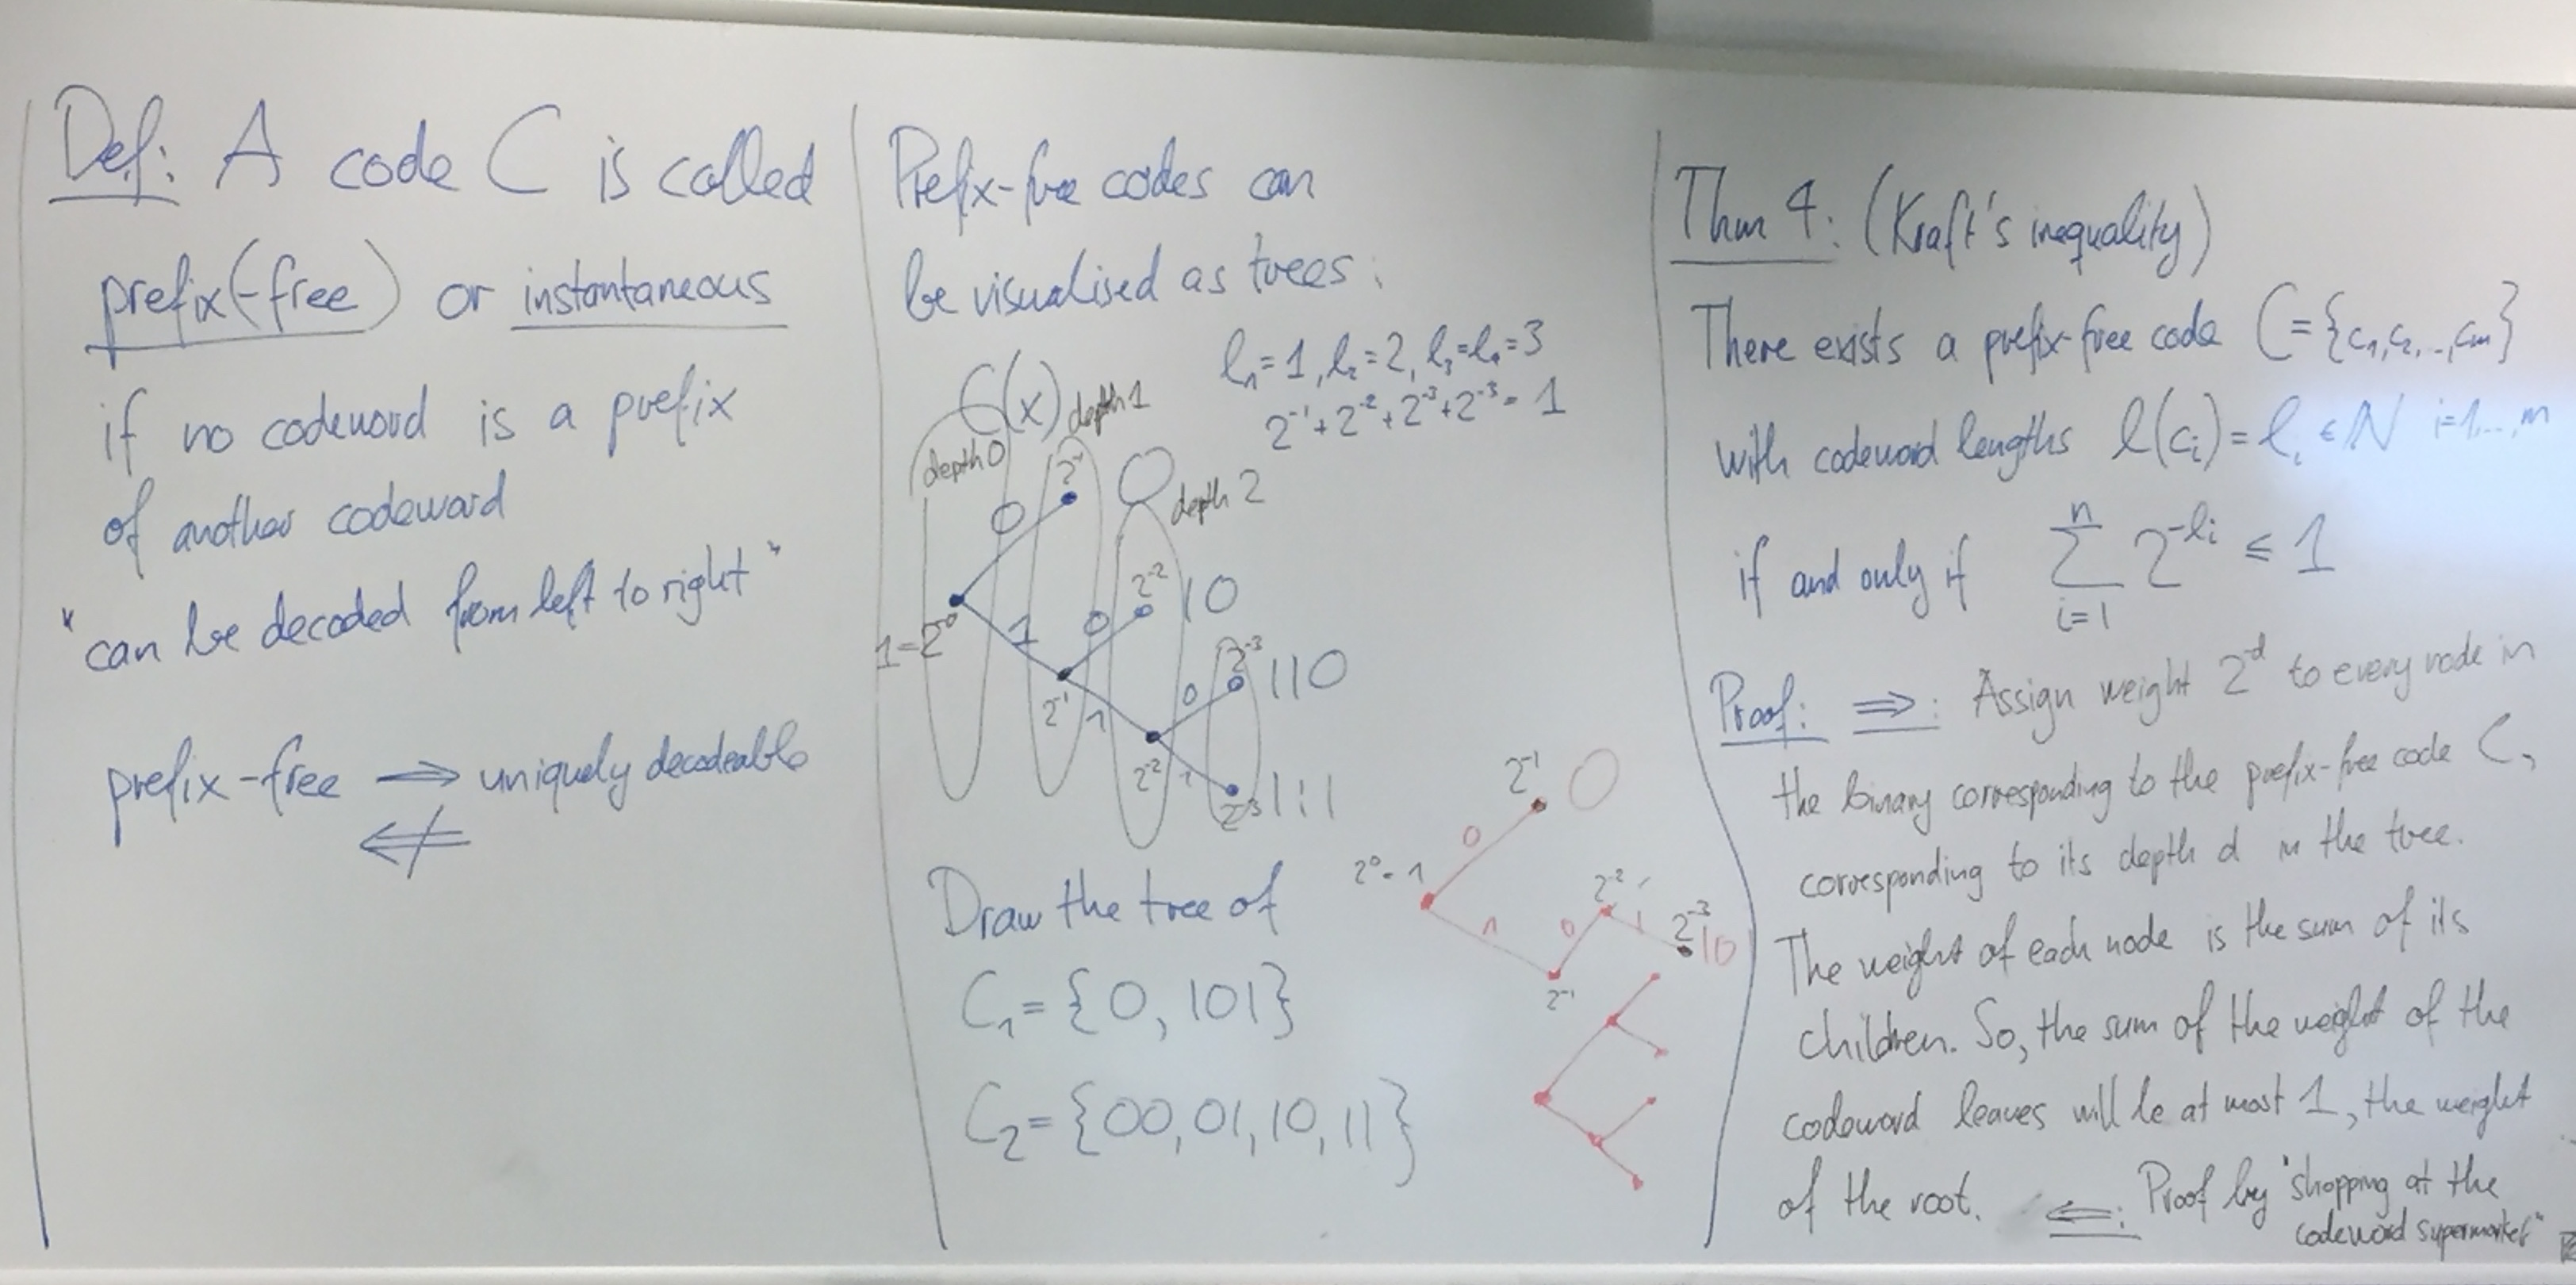 Def: A code C is called
prefix(-free) or instantaneous
if no codeword is a prefix
of another codeword
"can be decoded from left to right"
prefix-free ⟹ uniquely decodeable
⟸̸
Prefix-free codes can
be visualised as trees:
l₁=1, l₂=2, l₃=l₄=3
2⁻¹+2⁻²+2⁻³+2⁻³=1
C(x)
depth 0
depth 1
depth 2
2⁻¹
0
0
1=2⁰
1
0
2⁻²
10
2⁻¹
1
0
2⁻³
110
2⁻²
1
2⁻³
111
Draw the tree of
C₁={0, 101}
C₂={00,01,10,11}
2⁻¹
0
0
2⁰=1
1
2⁻¹
0
2⁻²
1
2⁻³
10
Thm 4: (Kraft's inequality)
There exists a prefix-free code C={c₁,c₂,..,cₘ}
with codeword lengths l(cᵢ)=lᵢ ∈ ℕ i=1,..,m
if and only if ∑ᵢ₌₁ⁿ 2^(-lᵢ) ≤ 1
Proof: ⟹: Assign weight 2^(-d) to every node in
the binary corresponding to the prefix-free code C,
corresponding to its depth d in the tree.
The weight of each node is the sum of its
children. So, the sum of the weight of the
codeword leaves will be at most 1, the weight
of the root. ⟸: Proof by "shopping at the
codeword supermarket"